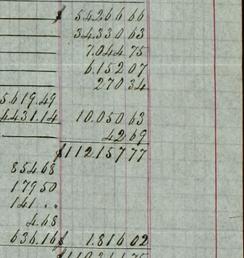 $ 54266 66
34330 63
7.044 75
6.152 07
270 34
5619.49
4431.14 10.050 63
42 69
$112.157 77
854.68
179 50
141 ..
4.68
636.16 $ 1.816 02